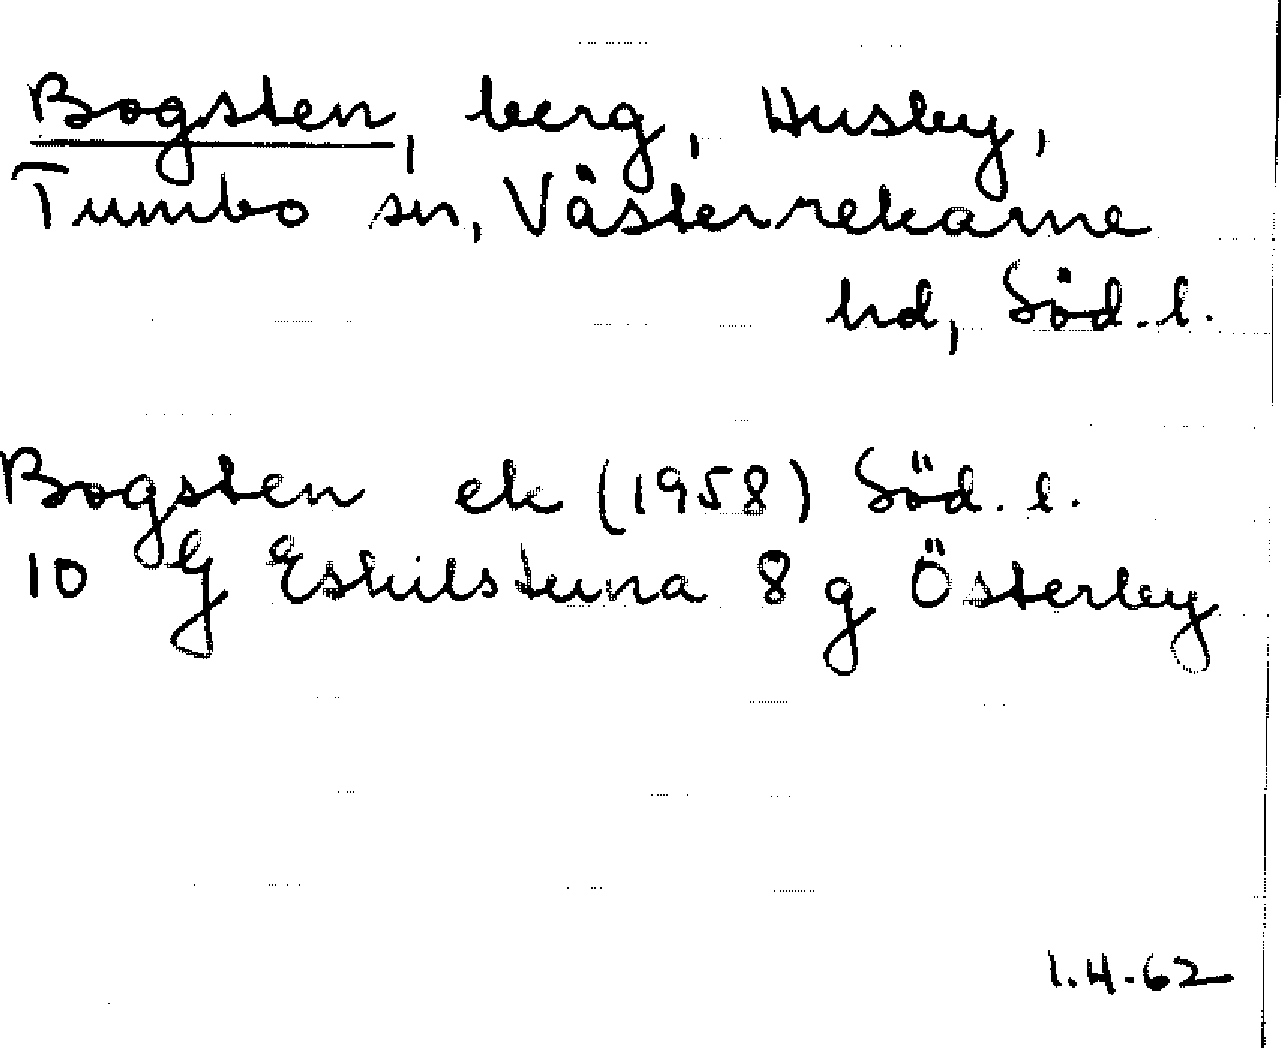 Bogsten, berg, Husby,
Tumbo sn, Västerrekarne
hd, Söd. l.
Bogsten ek (1958) Söd. l.
10 G Eskilstuna 8 g Österby
1.4.62